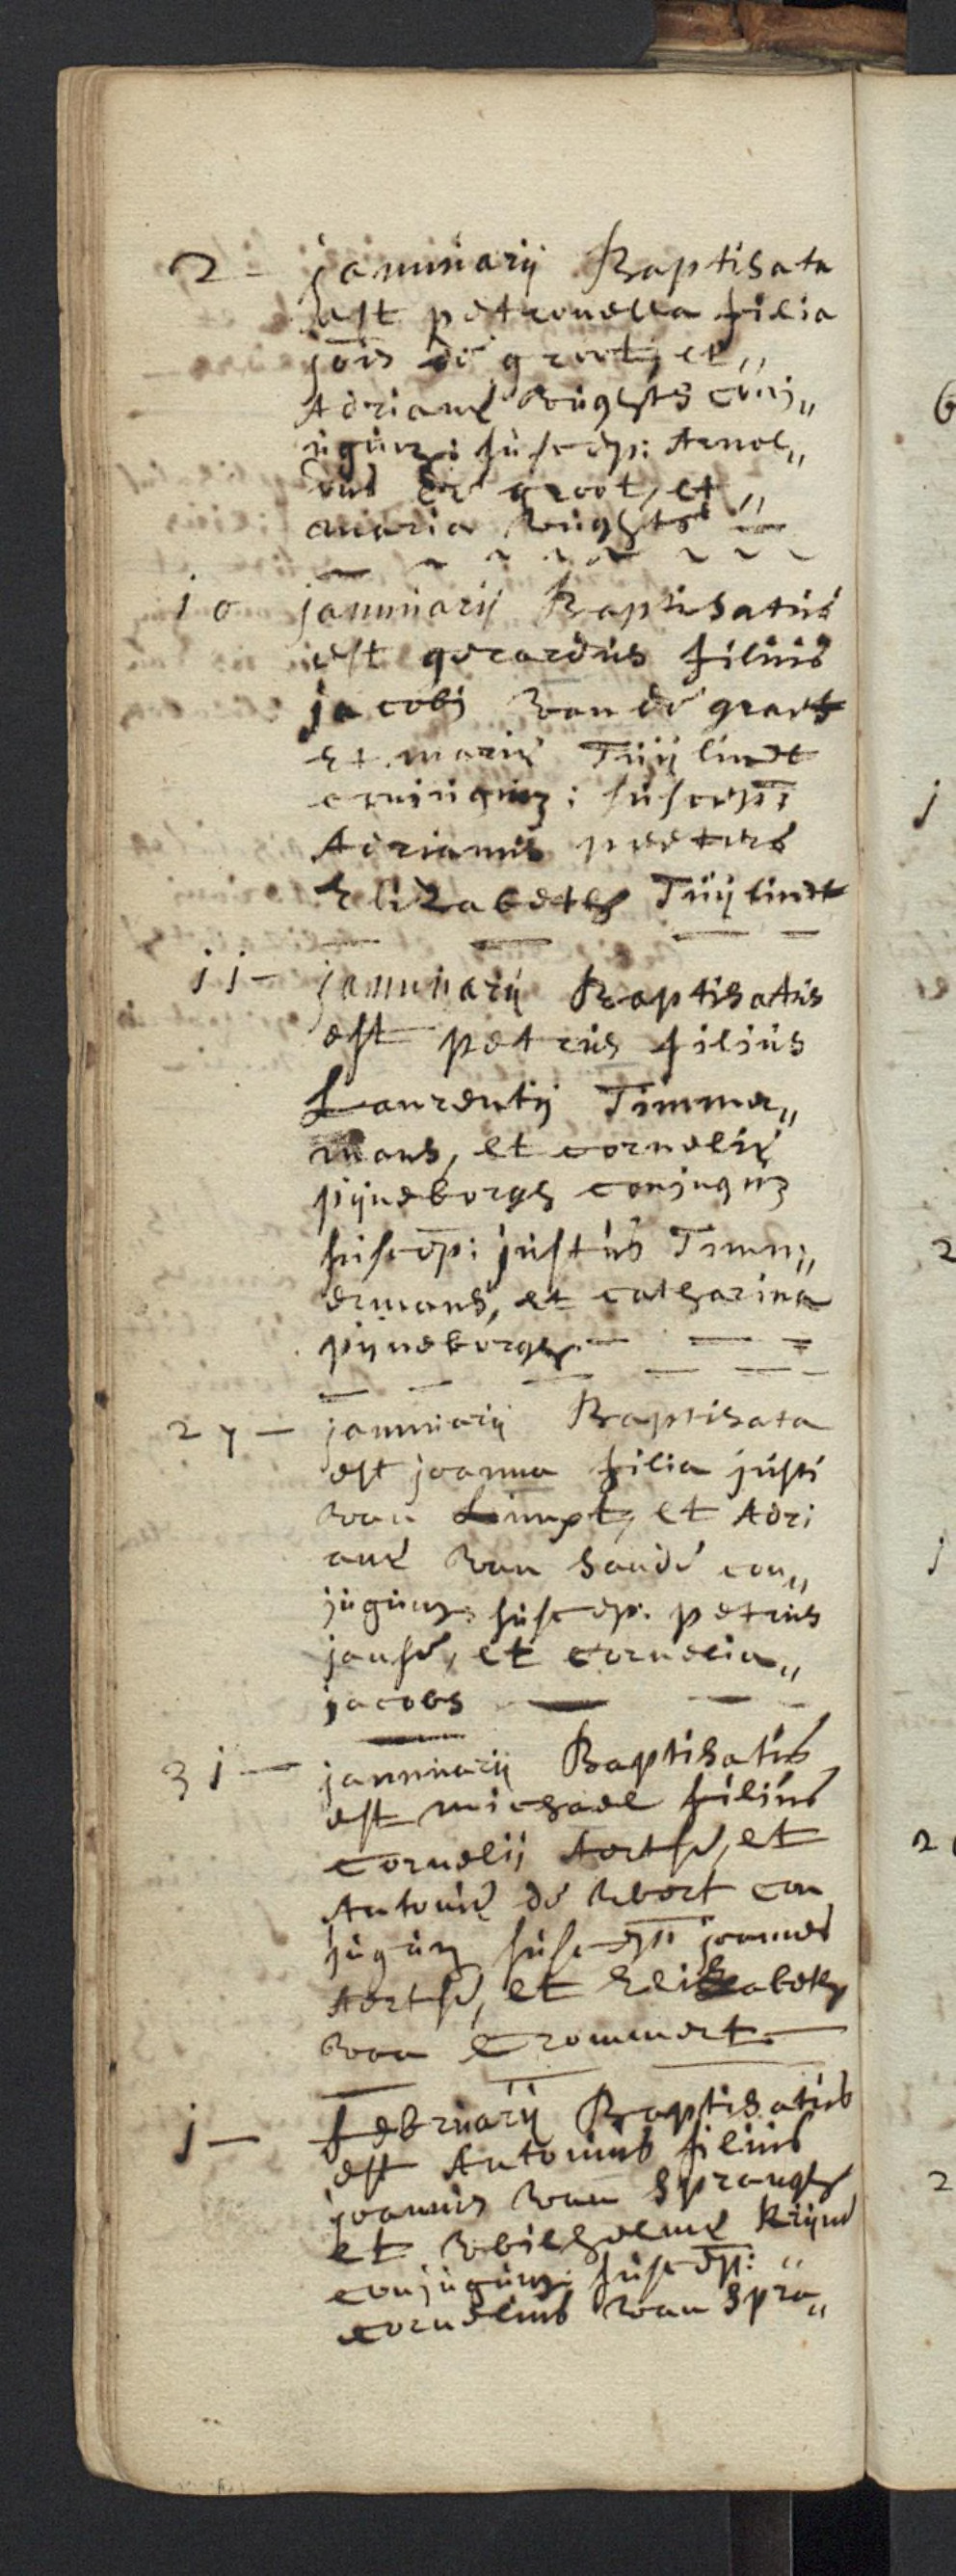 2 - januuarij Baptisata
est petronella filia
jois de groot, et „
Adrianę Rüghts conj „
ügüm; süscep: Arnol „
dus de groot, et „
maria Rüghts
10 januuarij Baptisatüs
est gerardüs filiüs
jacobi van de graef
et marię Tüÿlindt
conjügüm; süscep:
Adrianüs peeters
Elizabeth Tüÿlindt
11 - januuarij Baptisatüs
est petrüs filiüs
Laurentij Timmer „
mans, et cornelię
pijneborgh conjugüm
süscep: jüstüs Timm „
ermans, et catharina
pijneborgh
27 - januuarij Baptisata
est joanna filia jüsti
van Limpt, et Adri
anę van Sande con „
jügüm; süscep: petrüs
janse, et cornelia „
jacobs
31 - januuarij Baptisatüs
est michael filiüs
Cornelij Aertse, et
Antonię de Weert con
jügüm süscep: joannes
Aertse, et Elizabeth
van Crommert
1 - februarij Baptisatüs
est Antoniüs filiüs
joannis van Sprangh
et Wilhelmę Krijne
conjügüm; süscep: „
corneliüs van Spra „
6
j
2
j
2
2